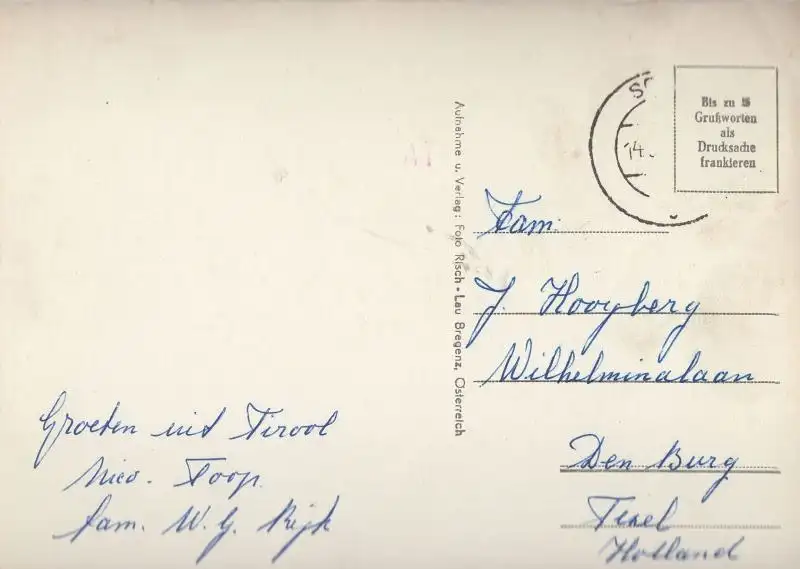 Groeten uit Tirool
Nico. Joop.
fam. W. G. Rijk
Aufnahme u. Verlag: Foto Risch-Lau Bregenz, Österreich
14.
Bis zu 5
Grußworten
als
Drucksache
frankieren
Fam.
J. Hooyberg
Wilhelminalaan
Den Burg
Texel
Holland